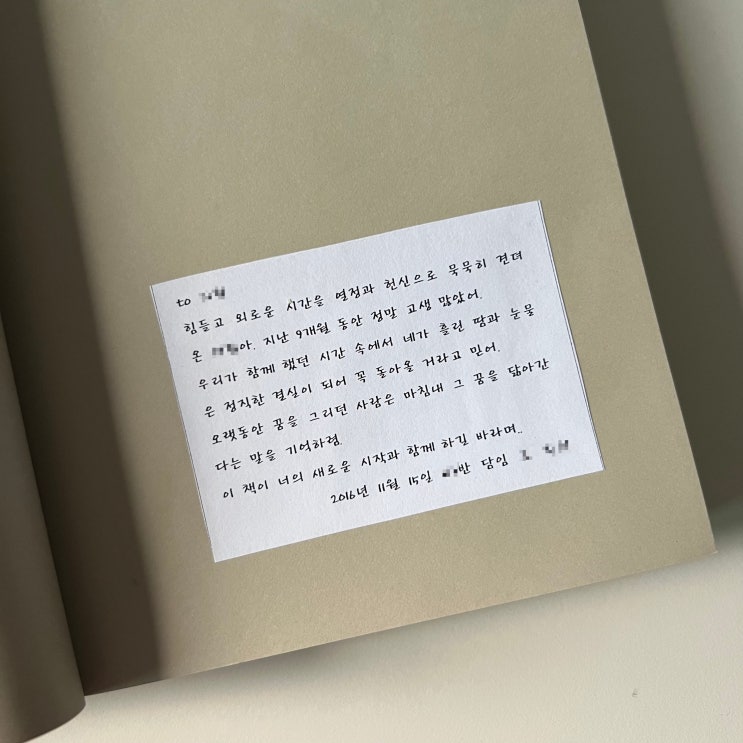 to
힘들고 외로운 시간을 열정과 헌신으로 묵묵히 견뎌
온 아. 지난 9개월 동안 정말 고생 많았어.
우리가 함께 했던 시간 속에서 네가 흘린 땀과 눈물
은 정직한 결실이 되어 꼭 돌아올 거라고 믿어.
오랫동안 꿈을 그리던 사람은 마침내 그 꿈을 닮아간
다는 말을 기억하렴.
이 책이 너의 새로운 시작과 함께 하길 바라며..
2016년 11월 15일 반 담임